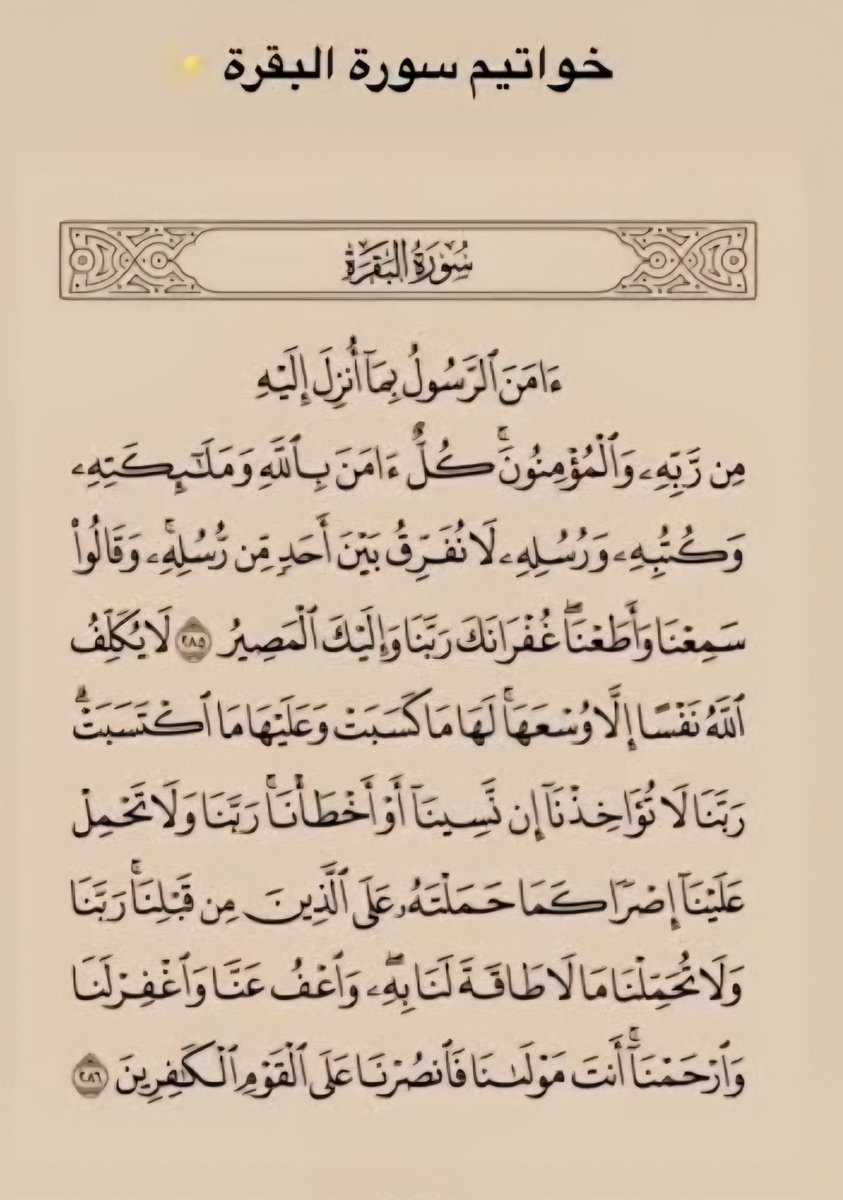 خواتيم سورة البقرة
سُورَةُ البَقَرَةِ
ءَامَنَ ٱلرَّسُولُ بِمَآ أُنزِلَ إِلَيْهِ
مِن رَّبِّهِۦ وَٱلْمُؤْمِنُونَۚ كُلٌّ ءَامَنَ بِٱللَّهِ وَمَلَـٰٓئِكَتِهِۦ
وَكُتُبِهِۦ وَرُسُلِهِۦ لَا نُفَرِّقُ بَيْنَ أَحَدٍ مِّن رُّسُلِهِۦۚ وَقَالُوا۟
سَمِعْنَا وَأَطَعْنَاۖ غُفْرَانَكَ رَبَّنَا وَإِلَيْكَ ٱلْمَصِيرُ ٢٨٥ لَا يُكَلِّفُ
ٱللَّهُ نَفْسًا إِلَّا وُسْعَهَاۚ لَهَا مَا كَسَبَتْ وَعَلَيْهَا مَا ٱكْتَسَبَتْۗ
رَبَّنَا لَا تُؤَاخِذْنَآ إِن نَّسِينَآ أَوْ أَخْطَأْنَاۚ رَبَّنَا وَلَا تَحْمِلْ
عَلَيْنَآ إِصْرًا كَمَا حَمَلْتَهُۥ عَلَى ٱلَّذِينَ مِن قَبْلِنَاۚ رَبَّنَا
وَلَا تُحَمِّلْنَا مَا لَا طَاقَةَ لَنَا بِهِۦۖ وَٱعْفُ عَنَّا وَٱغْفِرْ لَنَا
وَٱرْحَمْنَآۚ أَنتَ مَوْلَىٰنَا فَٱنصُرْنَا عَلَى ٱلْقَوْمِ ٱلْكَـٰفِرِينَ ٢٨٦